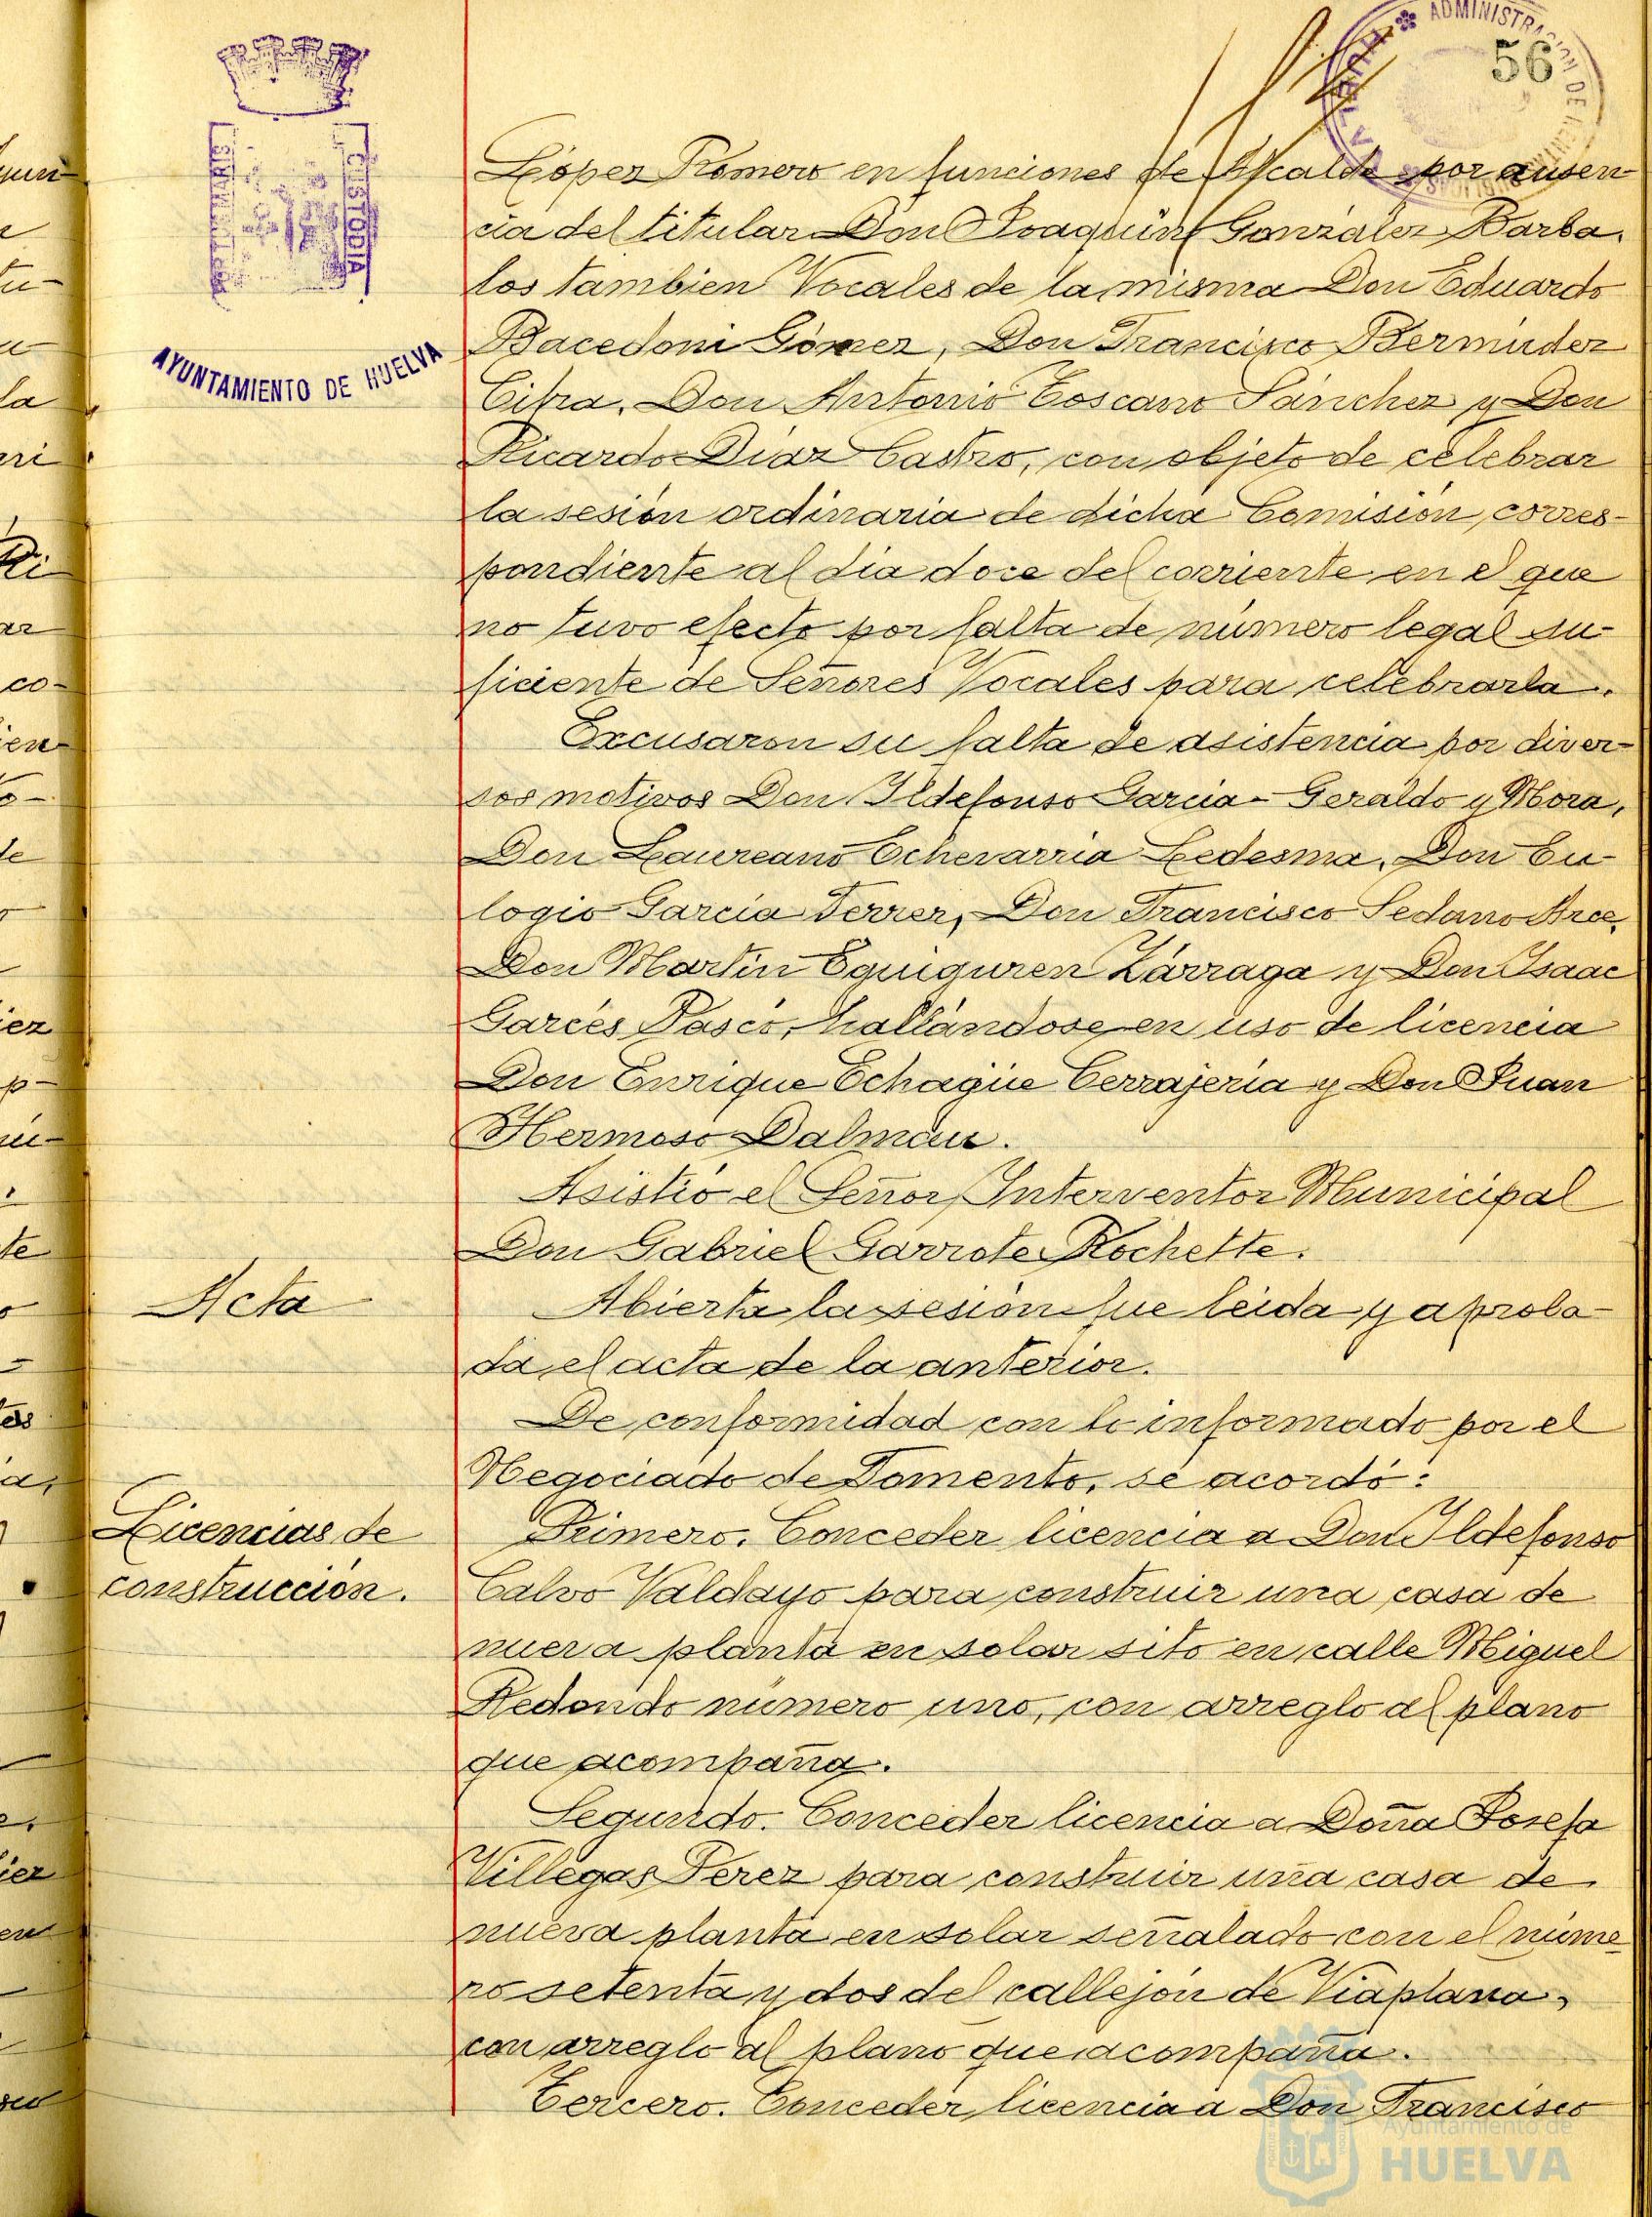 56
ADMINISTRACION DE
PORTUS MARIS
CUSTODIA
AYUNTAMIENTO DE HUELVA
López Romero en funciones de Alcalde por ausen-
cia del titular Don Joaquin González Barba,
los tambien Vocales de la misma Don Eduardo
Bacedoni Gómez, Don Francisco Bermúdez
Cifra, Don Antonio Toscano Sánchez y Don
Ricardo Diaz Castro, con objeto de celebrar
la sesión ordinaria de dicha Comisión, corres-
pondiente al dia doce del corriente en el que
no tuvo efecto por falta de número legal su-
ficiente de Señores Vocales para celebrarla.
Excusaron su falta de asistencia por diver-
sos motivos Don Ildefonso Garcia-Geraldo y Mora,
Don Laureano Echevarria Ledesma, Don Eu-
logio Garcia Ferrer, Don Francisco Sedano Arce,
Don Martin Eguiguren Zárraga y Don Isaac
Garcés Pasco, hallándose en uso de licencia
Don Enrique Echagüe Cerrajeria y Don Juan
Hermoso Dalmau.
Asistió el Señor Interventor Municipal
Don Gabriel Garrote Rochette.
Acta
Abierta la sesión fue leida y aproba-
da el acta de la anterior.
De conformidad con lo informado por el
Negociado de Fomento, se acordó:
Licencias de
construcción.
Primero. Conceder licencia a Don Ildefonso
Calvo Valdayo para construir una casa de
nueva planta en solar sito en calle Miguel
Redondo número uno, con arreglo al plano
que acompaña.
Segundo. Conceder licencia a Doña Josefa
Villegas Perez para construir una casa de
nueva planta en solar señalado con el núme
ro setenta y dos del callejón de Viaplana,
con arreglo al plano que acompaña.
Tercero. Conceder licencia a Don Francisco
Ayuntamiento de
HUELVA